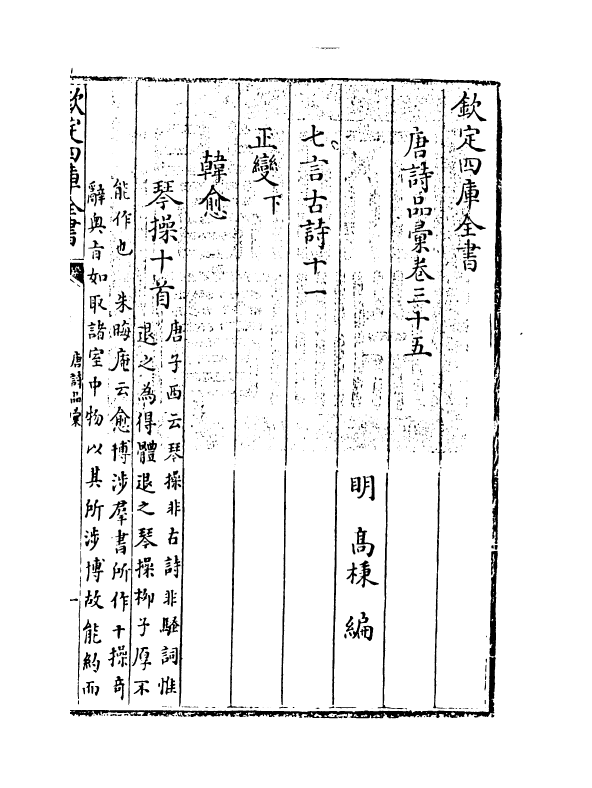 欽定四庫全書
唐詩品彙卷三十五
明　高棅　編
七言古詩十一
正變下
韓愈
琴操十首
唐子西云琴操非古詩非騷詞惟
退之為得體退之琴操柳子厚不
能作也　朱晦庵云愈博涉羣書所作十操奇
辭奥旨如取諸室中物以其所涉博故能約而
欽定四庫全書
唐詩品彙
一